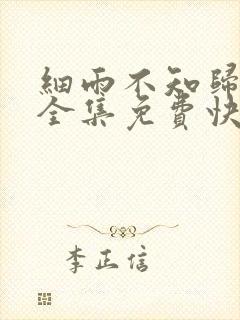 細雨不知歸
全集免費快
李正信